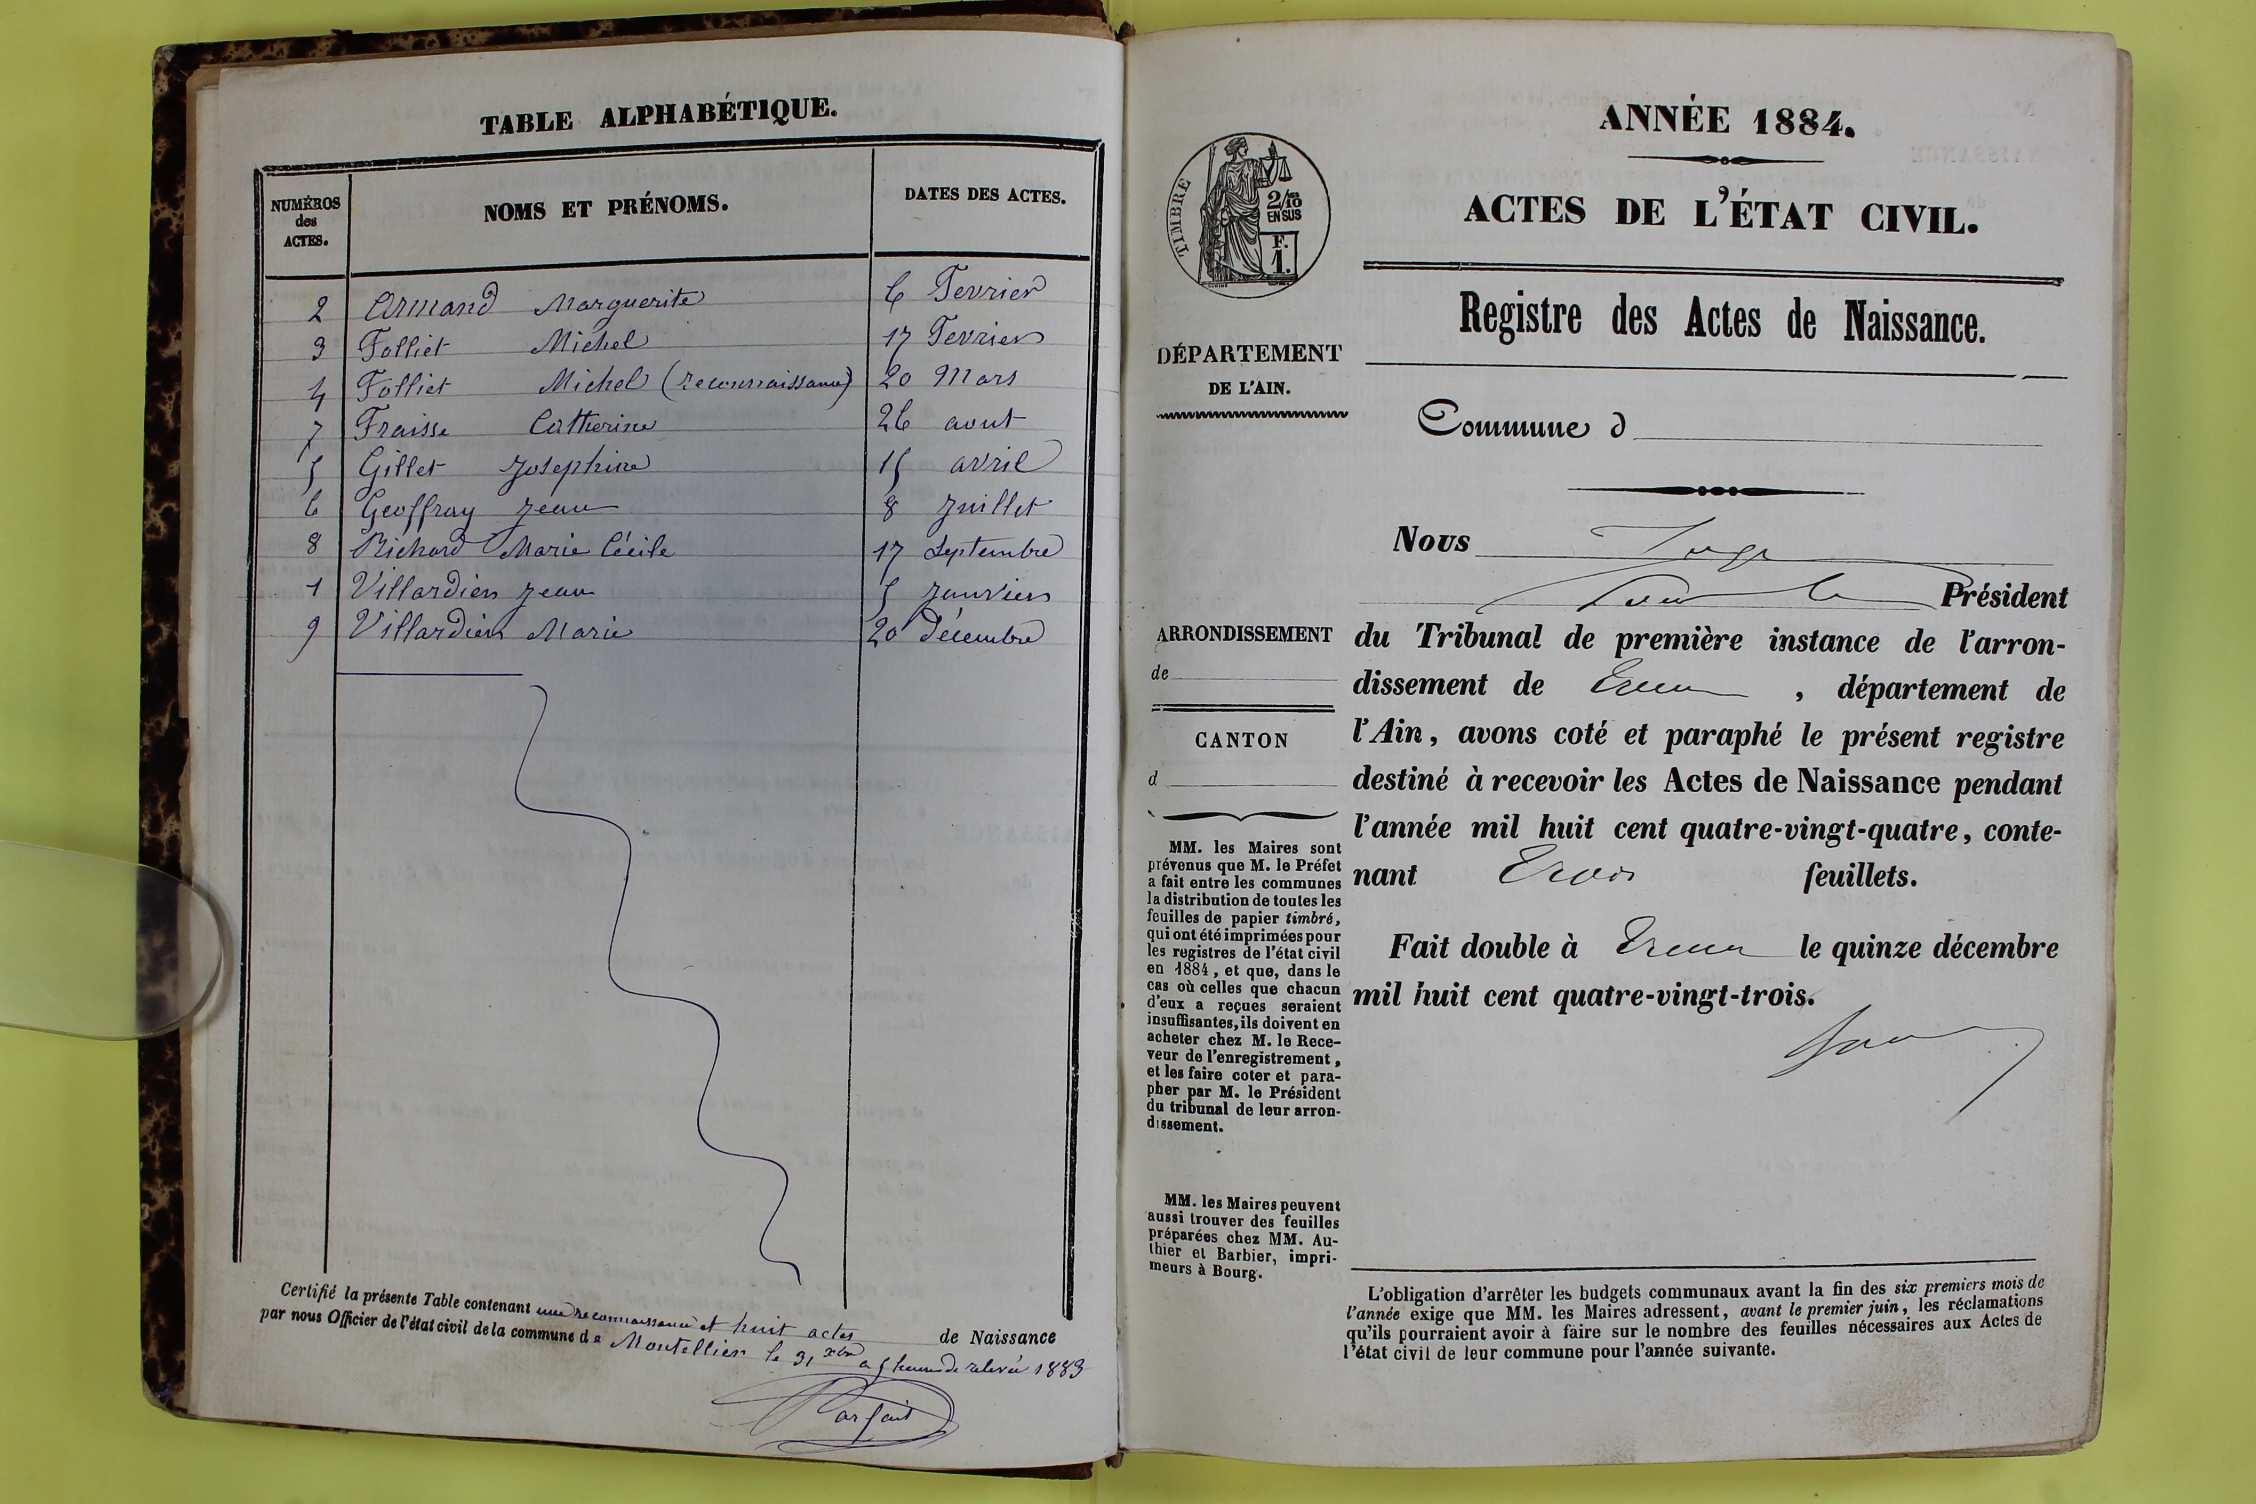 TABLE ALPHABÉTIQUE.
NUMÉROS
des
ACTES.
NOMS ET PRÉNOMS.
DATES DES ACTES.
2 Armand Marguerite 6 Fevrier
3 Folliet Michel 17 Fevrier
4 Folliet Michel (reconnaissance) 20 Mars
7 Fraisse Catherine 26 aout
5 Gillet Josephine 15 avril
6 Geoffray Jean 8 Juillet
8 Richard Marie Cécile 17 Septembre
1 Villardier Jean 5 Janvier
9 Villardier Marie 20 Décembre
Certifié la présente Table contenant une reconnaissance et huit actes de Naissance
par nous Officier de l'état civil de la commune de Montellier le 31 xbre a 5 heures de relevée 1883
Parfait
ANNÉE 1884.
ACTES DE L'ÉTAT CIVIL.
Registre des Actes de Naissance.
TIMBRE
2/10
EN SUS
F.
1.
DÉPARTEMENT
DE L'AIN.
Commune d
Nous Juge
Président
ARRONDISSEMENT
de
CANTON
d
du Tribunal de première instance de l'arron-
dissement de Trevoux, département de
l'Ain, avons coté et paraphé le présent registre
destiné à recevoir les Actes de Naissance pendant
l'année mil huit cent quatre-vingt-quatre, conte-
nant Trois feuillets.
Fait double à Trevoux le quinze décembre
mil huit cent quatre-vingt-trois.
MM. les Maires sont
prévenus que M. le Préfet
a fait entre les communes
la distribution de toutes les
feuilles de papier timbré,
qui ont été imprimées pour
les registres de l'état civil
en 1884, et que, dans le
cas où celles que chacun
d'eux a reçues seraient
insuffisantes, ils doivent en
acheter chez M. le Rece-
veur de l'enregistrement,
et les faire coter et para-
pher par M. le Président
du tribunal de leur arron-
dissement.
MM. les Maires peuvent
aussi trouver des feuilles
préparées chez MM. Au-
thier et Barbier, impri-
meurs à Bourg.
L'obligation d'arrêter les budgets communaux avant la fin des six premiers mois de
l'année exige que MM. les Maires adressent, avant le premier juin, les réclamations
qu'ils pourraient avoir à faire sur le nombre des feuilles nécessaires aux Actes de
l'état civil de leur commune pour l'année suivante.